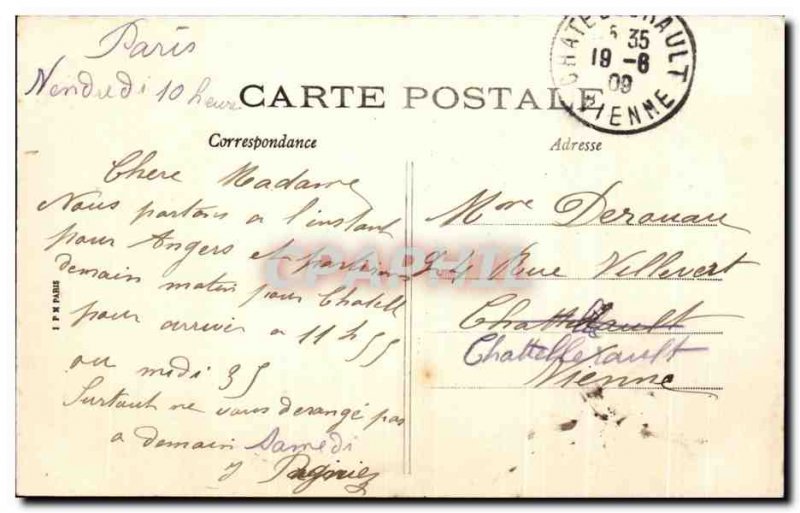 Paris
Vendredi 10 heure
CARTE POSTALE
CHATELLERAULT
35
19-6
09
VIENNE
Correspondance
Adresse
Chere Madame
Nous partons a l'instant
pour Angers et partirons
demain matin pour Chatell
pour arriver a 11 h 55
ou midi 35
Surtout ne vous derangé pas
a demain Samedi
Mme Derouau
Rue Villevert
Chattellerault
Chattellerault
Vienne
I P M PARIS
CPAPHIL